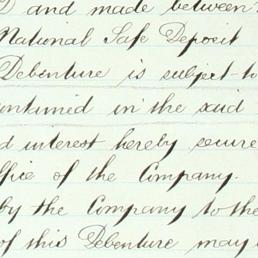 and made between
National Safe Deposit
Debenture is subject to
contained in the said
d interest hereby secure
ffice of the Company.
by the Company to the
of this Debenture may